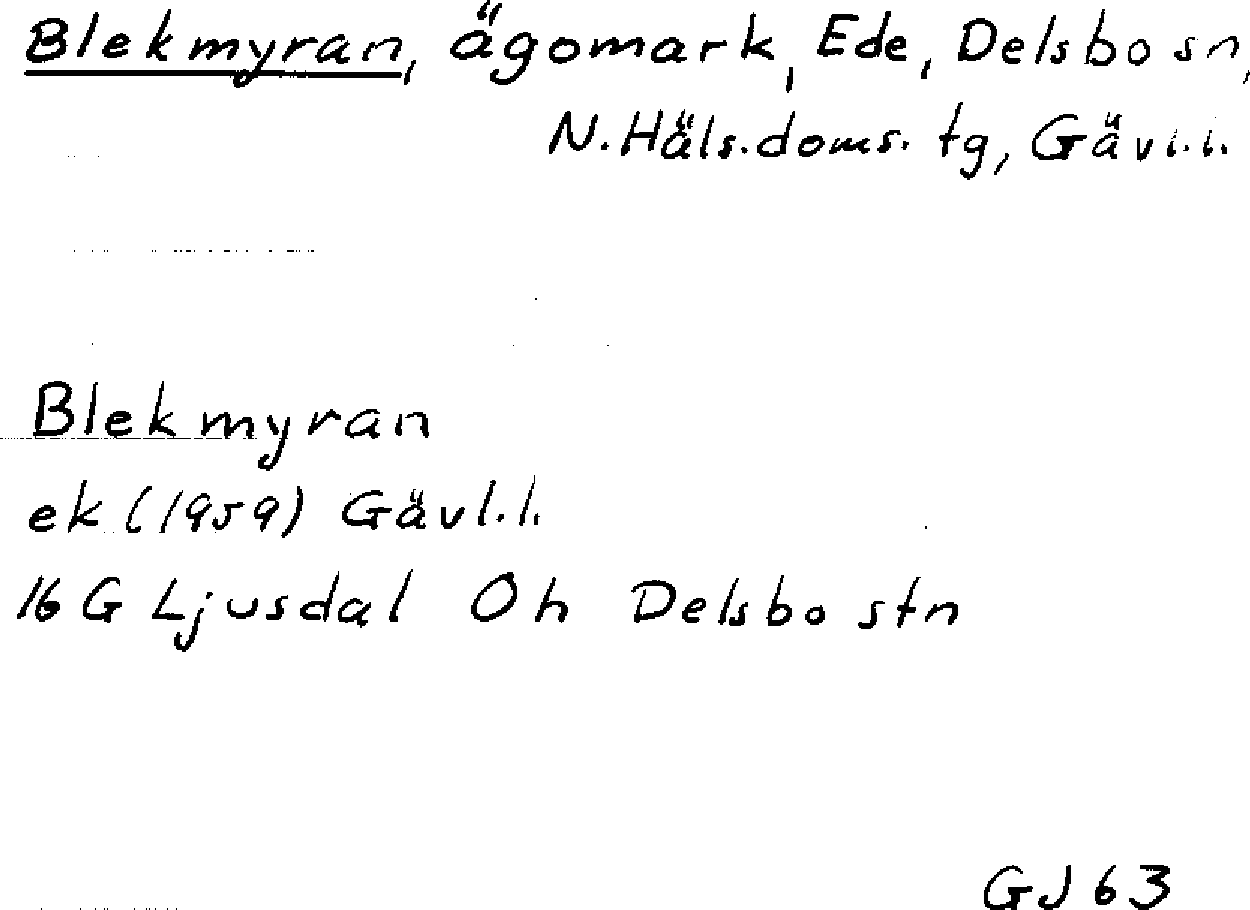 Blekmyran, ägomark, Ede, Delsbo sn,
N.Häls.doms. tg, Gävl.l.
Blekmyran
ek (1959) Gävl.l.
16 G Ljusdal 0h Delsbo stn
GJ 63